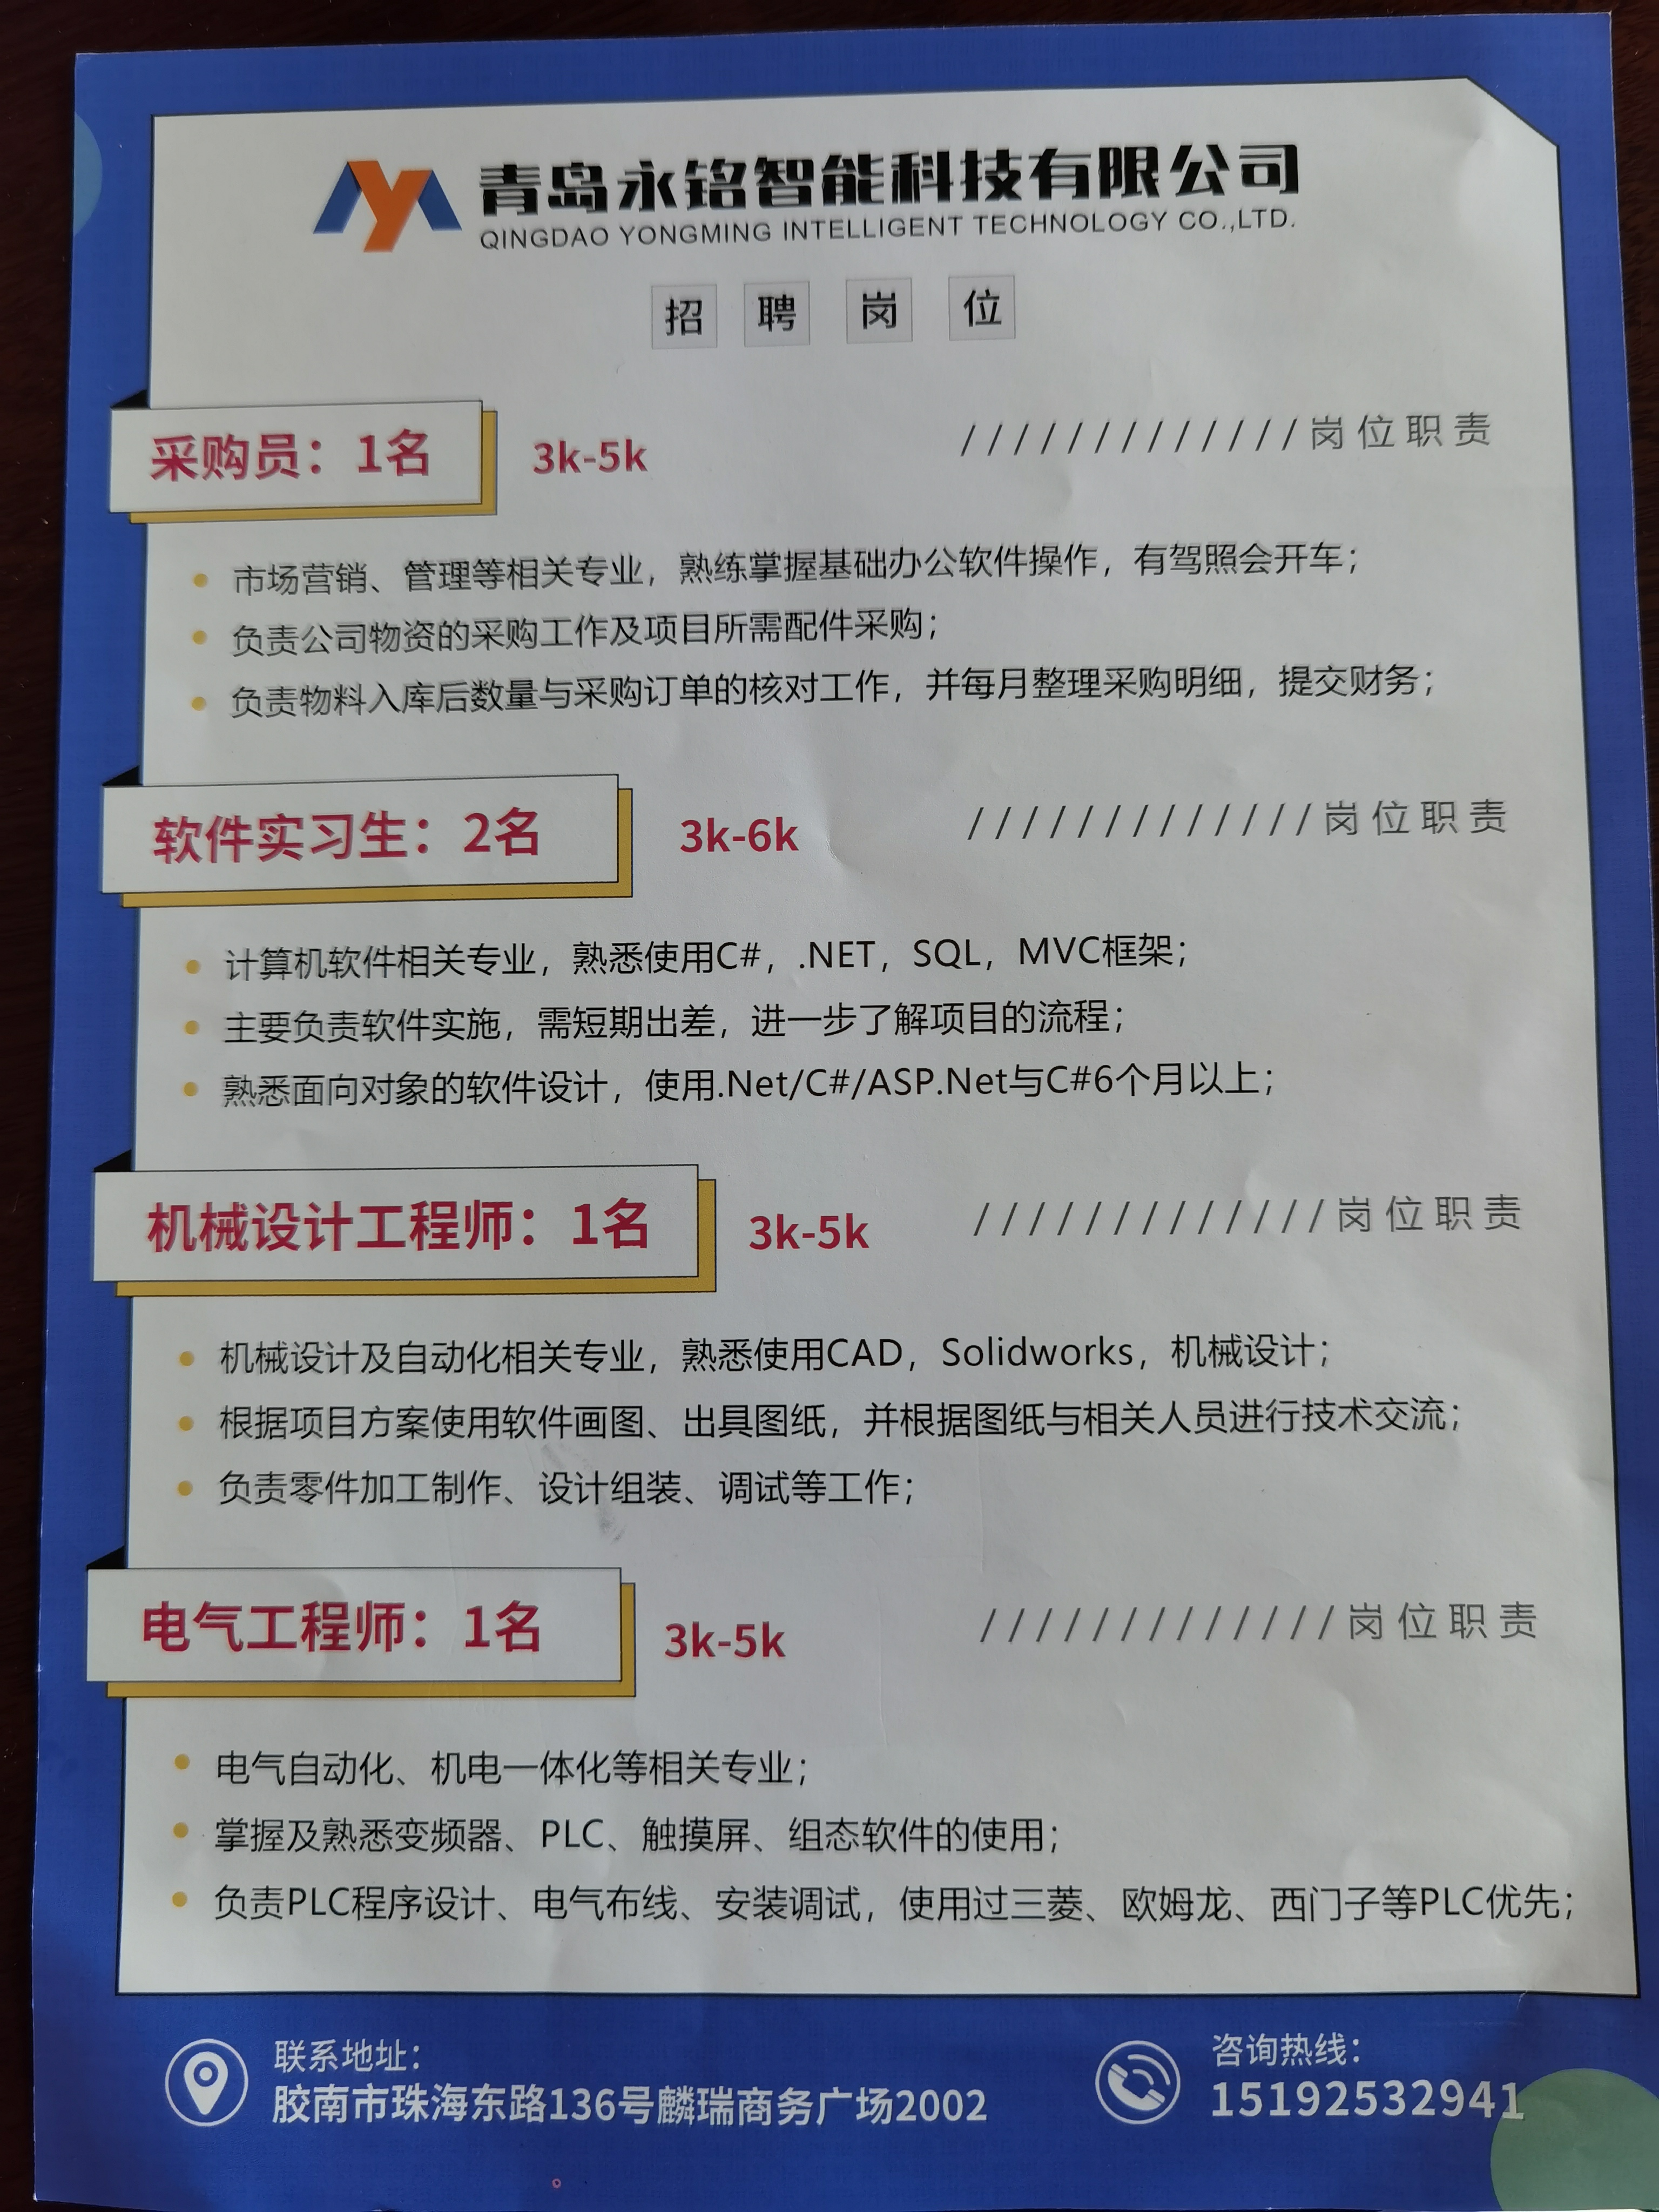 青岛永铭智能科技有限公司
QINGDAO YONGMING INTELLIGENT TECHNOLOGY CO.,LTD.
招聘岗位
采购员：1名 3k-5k /////////////岗位职责
市场营销、管理等相关专业，熟练掌握基础办公软件操作，有驾照会开车；
负责公司物资的采购工作及项目所需配件采购；
负责物料入库后数量与采购订单的核对工作，并每月整理采购明细，提交财务；
软件实习生：2名 3k-6k /////////////岗位职责
计算机软件相关专业，熟悉使用C#，.NET，SQL，MVC框架；
主要负责软件实施，需短期出差，进一步了解项目的流程；
熟悉面向对象的软件设计，使用.Net/C#/ASP.Net与C#6个月以上；
机械设计工程师：1名 3k-5k /////////////岗位职责
机械设计及自动化相关专业，熟悉使用CAD，Solidworks，机械设计；
根据项目方案使用软件画图、出具图纸，并根据图纸与相关人员进行技术交流；
负责零件加工制作、设计组装、调试等工作；
电气工程师：1名 3k-5k /////////////岗位职责
电气自动化、机电一体化等相关专业；
掌握及熟悉变频器、PLC、触摸屏、组态软件的使用；
负责PLC程序设计、电气布线、安装调试，使用过三菱、欧姆龙、西门子等PLC优先；
联系地址：
胶南市珠海东路136号麟瑞商务广场2002
咨询热线：
15192532941